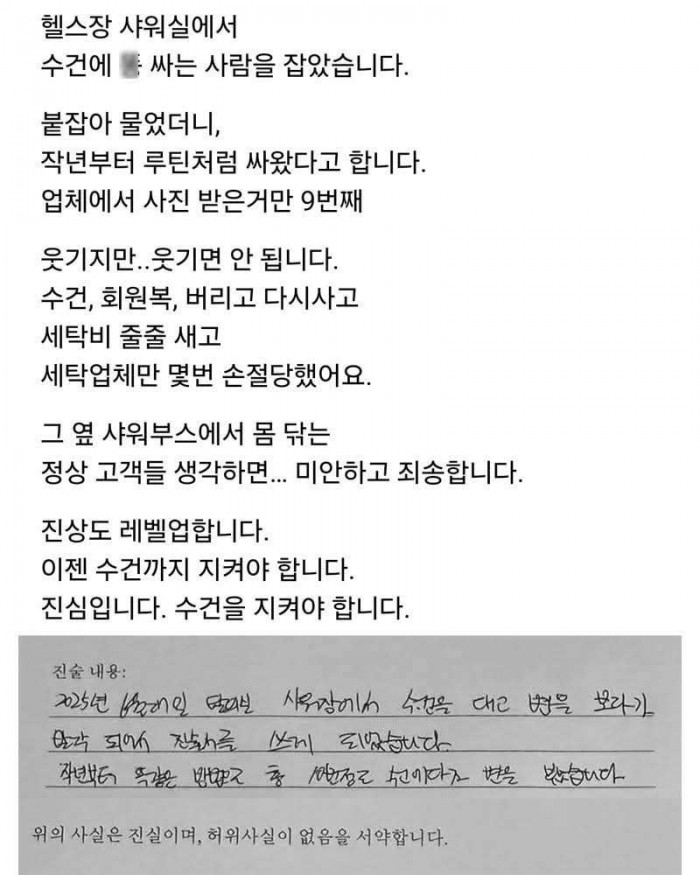 헬스장 샤워실에서
수건에 싸는 사람을 잡았습니다.
붙잡아 물었더니,
작년부터 루틴처럼 싸왔다고 합니다.
업체에서 사진 받은거만 9번째
웃기지만..웃기면 안 됩니다.
수건, 회원복, 버리고 다시사고
세탁비 줄줄 새고
세탁업체만 몇번 손절당했어요.
그 옆 샤워부스에서 몸 닦는
정상 고객들 생각하면... 미안하고 죄송합니다.
진상도 레벨업합니다.
이젠 수건까지 지켜야 합니다.
진심입니다. 수건을 지켜야 합니다.
진술 내용:
2025년 샤워장에서 수건을 대고 변을 보다가
발각 되어서 진술서를 쓰게 되었습니다
작년부터 똑같은 방법으로 총 수건에다가 변을 봤습니다
위의 사실은 진실이며, 허위사실이 없음을 서약합니다.